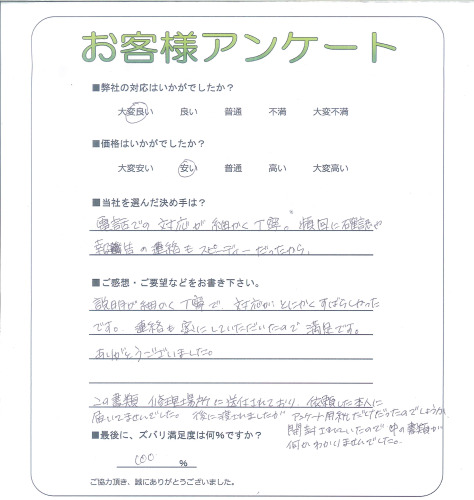 お客様アンケート
■弊社の対応はいかがでしたか?
大変良い 良い 普通 不満 大変不満
■価格はいかがでしたか?
大変安い 安い 普通 高い 大変高い
■当社を選んだ決め手は?
電話での対応が細かく丁寧。頻回に確認や
報告の連絡もスピーディーだったから。
■ご感想・ご要望などをお書き下さい。
説明が細かく丁寧で、対応がとにかくすばらしかった
です。連絡も密にしていただいたので満足です。
ありがとうございました。
この書類、修理場所に送付されており、依頼した本人に
届いてませんでした。後に渡されましたが アンケート用紙だけだったのでしょうか。
開封されていたので中の書類が
何かわかりませんでした。
■最後に、ズバリ満足度は何%ですか?
100 %
ご協力頂き、誠にありがとうございました。